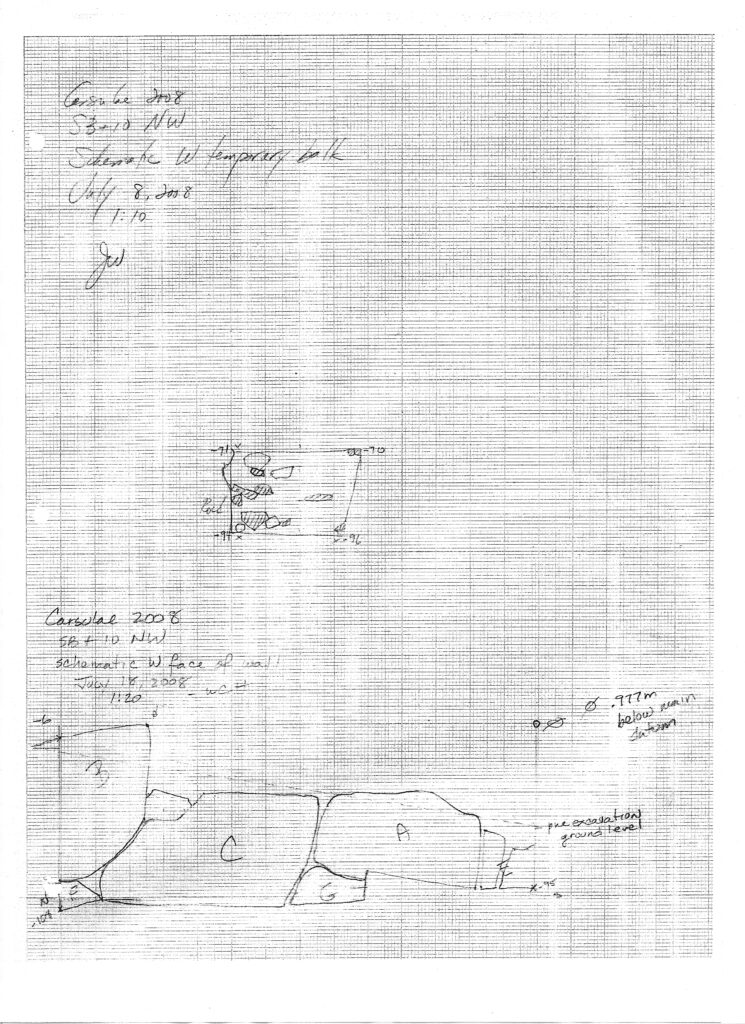 Carsulae 2008
SB+10 NW
Schematic W temporary balk
July 8, 2008
1:10
JW
-71 x
-70
Rock
x
x -96
Carsulae 2008
SB + 10 NW
schematic W face of wall
July 18, 2008
1:20
-6
.977m
below main
datum
B
pre excavation
ground level
A
C
E
F
G
N
x -95
S